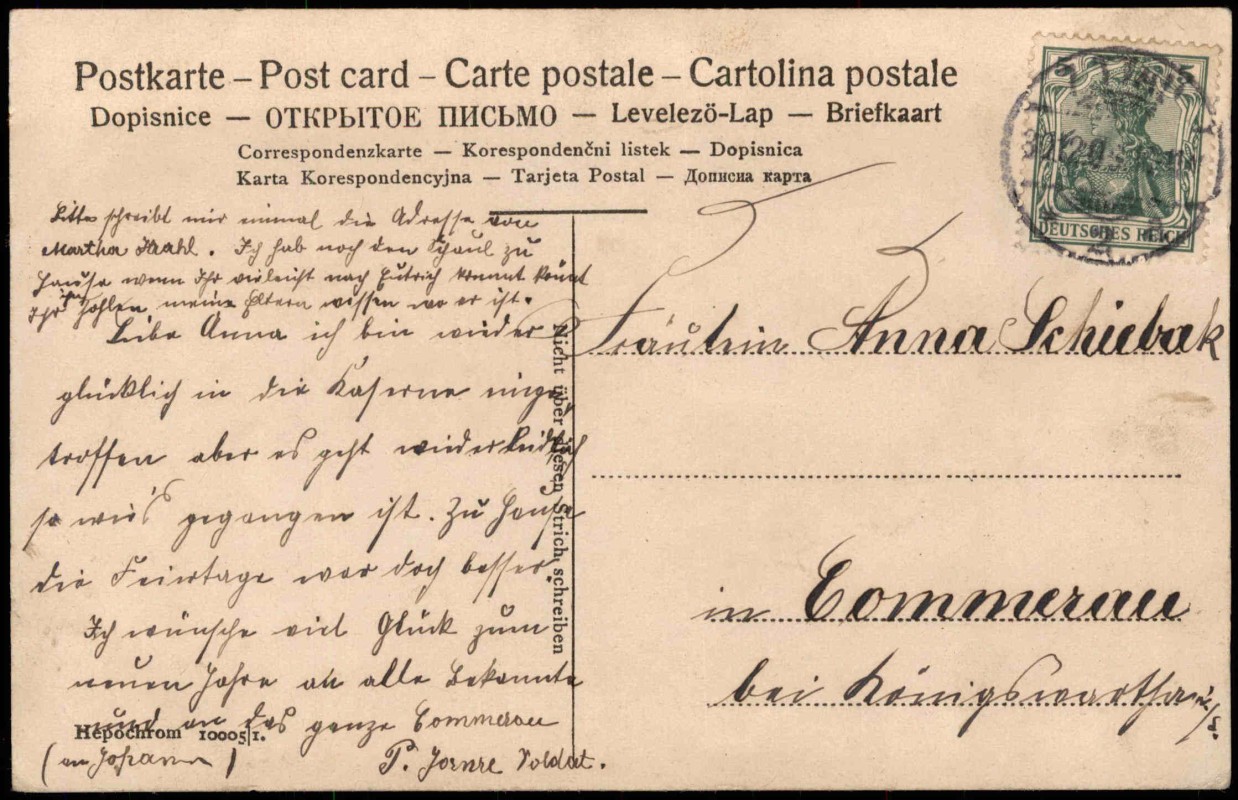 Postkarte – Post card – Carte postale – Cartolina postale
Dopisnice — ОТКРЫТОЕ ПИСЬМО — Levelezö-Lap — Briefkaart
Correspondenzkarte — Korespondenčni listek — Dopisnica
Karta Korespondencyjna — Tarjeta Postal — Дописна карта
DEUTSCHES REICH
5 5
Bitte schreibt mir einmal die Adresse von
Martha. Ich hab noch den Schaul zu
Hause wenn Ihr vieleicht nach Eutrich kommt könnt
Ihr ihn hohlen meine Eltern wissen wo er ist.
Liebe Anna ich bin wieder
glücklich in die Kaserne einge-
troffen aber es geht wieder
so wie's gegangen ist. Zu Hause
die Feiertage war doch besser.
Ich wünsche viel Glück zum
neuen Jahre an alle Bekannte
und an das ganze Commerau
(an Johann)
P. Soldat.
Nicht über diesen Strich schreiben
Hepochrom 10005/1.
Fräulein Anna Schiebak
in Commerau
bei Königswartha i/S.